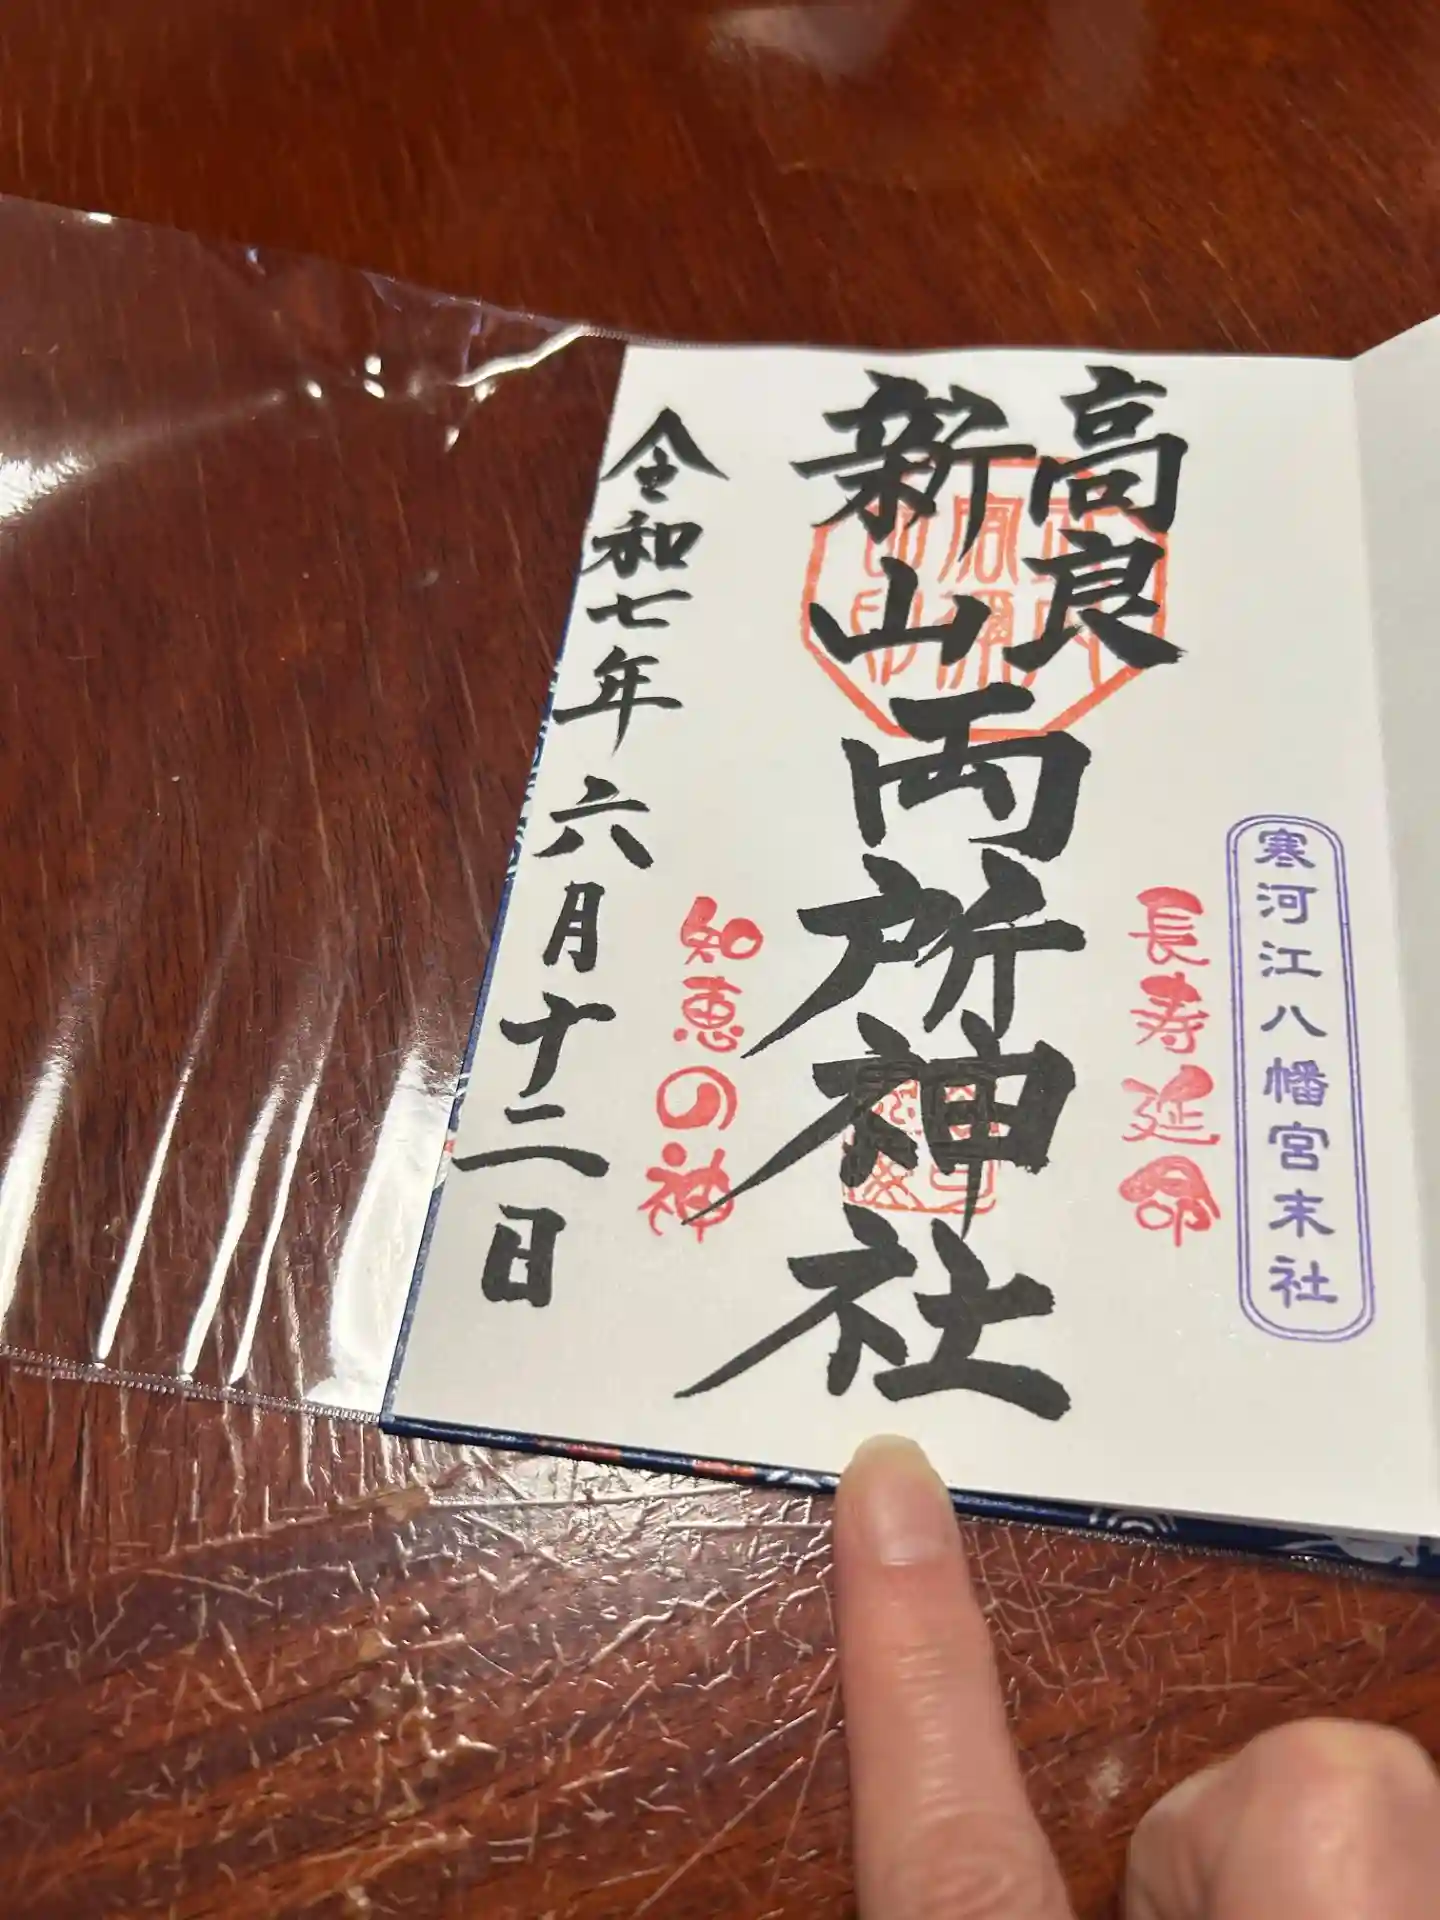 寒河江八幡宮末社
長寿延命
高良
新山
両所神社
知恵の神
令和七年六月十二日